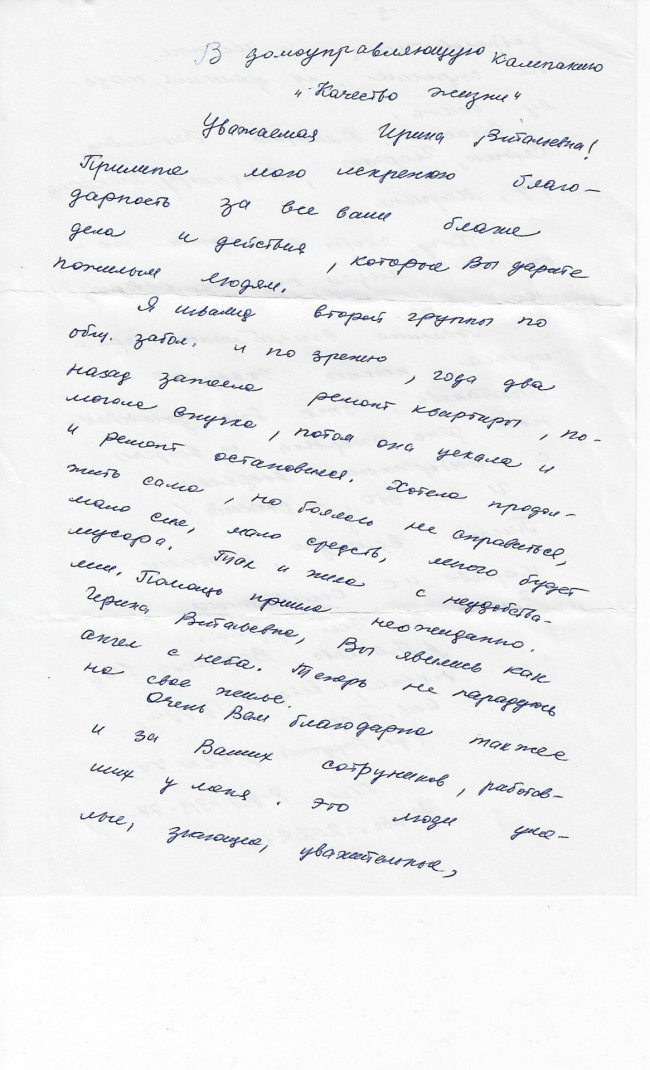 В домоуправляющую кампанию
"Качество жизни"
Уважаемая Ирина Витальевна!
Примите мою искреннюю благо-
дарность за все ваши благие
дела и действия, которые Вы дарите
пожилым людям.
Я инвалид второй группы по
общ. забол. и по зрению, года два
назад затеяла ремонт квартиры, по-
могала внучка, потом она уехала и
и ремонт остановился. Хотела продол-
жить сама, но боялась не справиться,
мало сил, мало средств, много будет
мусора. Так и жила с неудобства-
ми. Помощь пришла неожиданно.
Ирина Витальевна, Вы явились как
ангел с неба. Теперь не нарадуюсь
на свое жилье.
Очень Вам благодарна также
и за Ваших сотрудников, работав-
ших у меня. Это люди уме-
лые, знающие, уважительные,